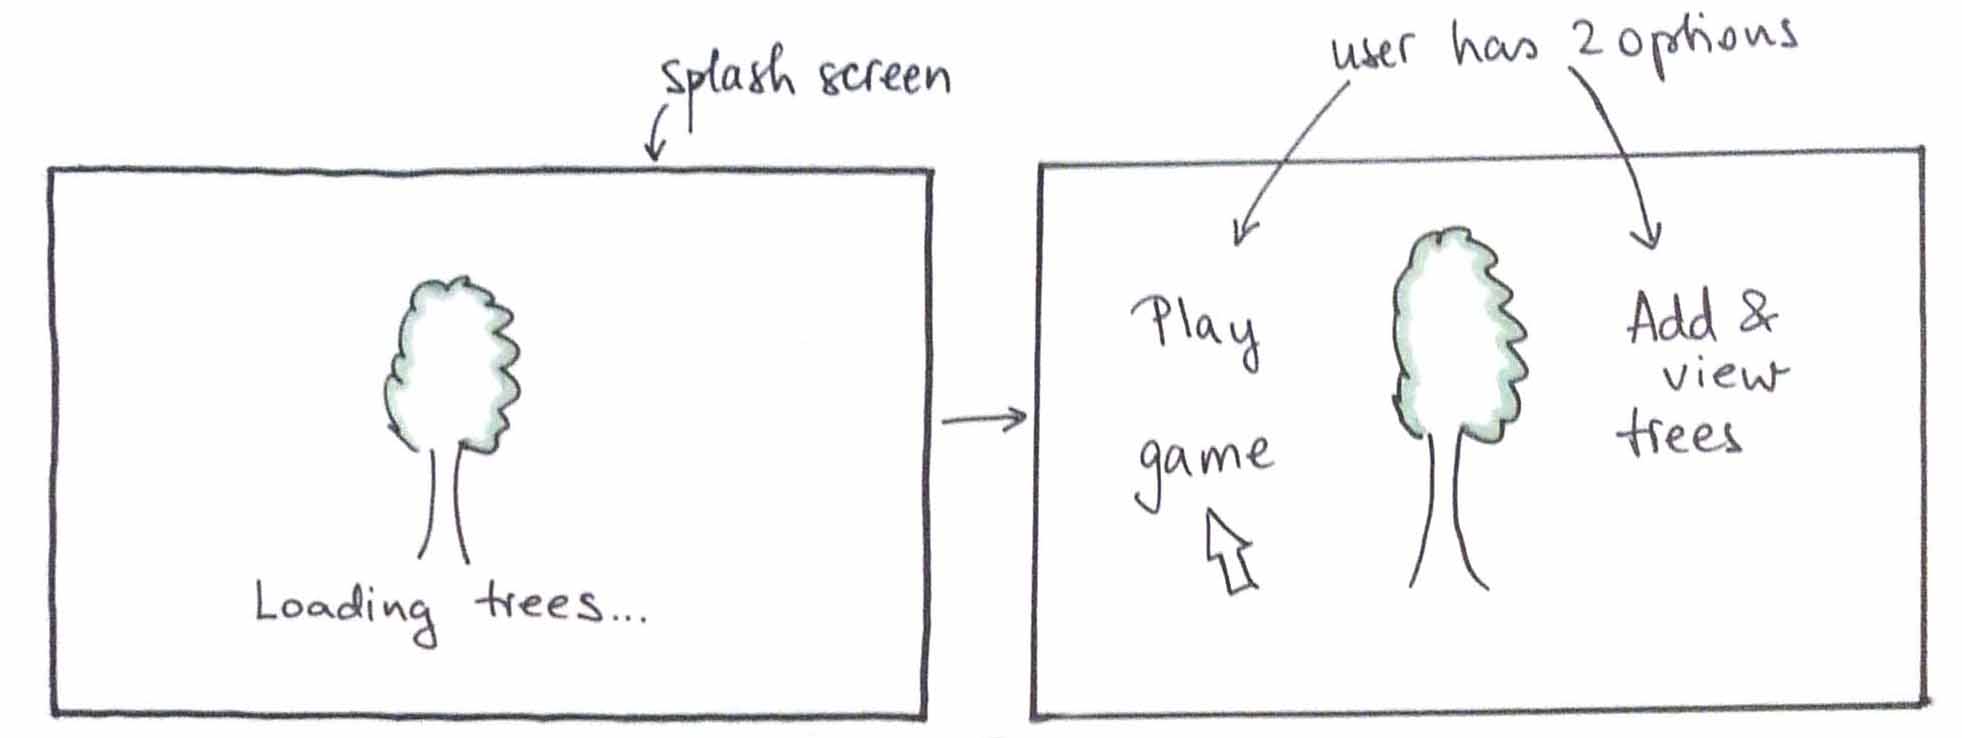 splash screen
Loading trees...
user has 2 options
Play
game
Add &
view
trees